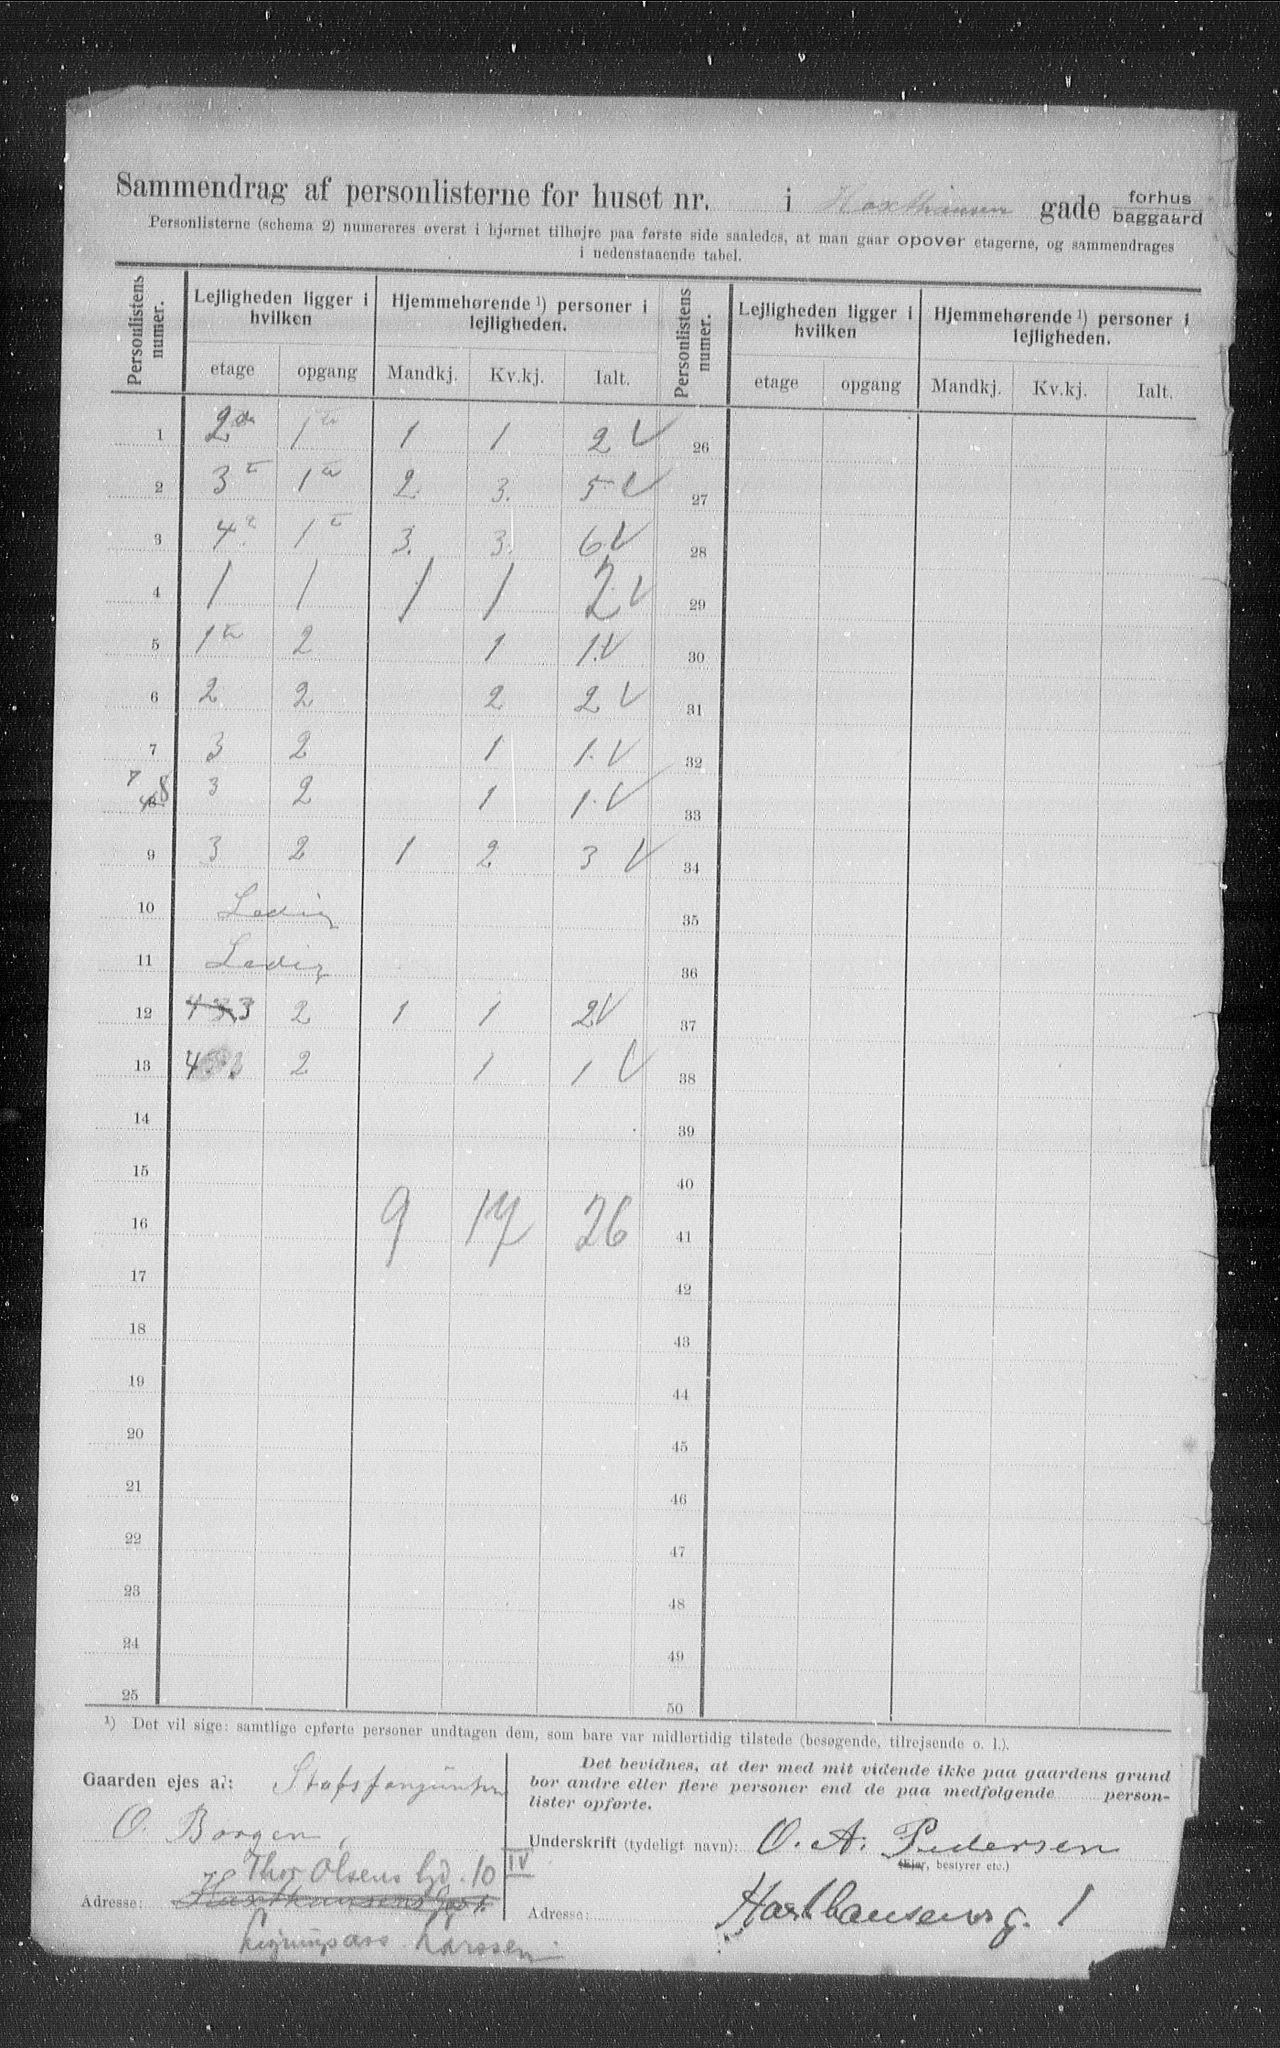 Sammendrag af personlisterne for huset nr. i Haxthausen gade forhus
baggaard
Personlisterne (schema 2) numereres øverst i hjørnet tilhøjre paa første side saaledes, at man gaar opover etagerne, og sammendrages
i nedenstaaende tabel.
Personlistens numer. Lejligheden ligger i hvilken Hjemmehørende ¹) personer i lejligheden. Personlistens numer. Lejligheden ligger i hvilken Hjemmehørende ¹) personer i lejligheden.
etage opgang Mandkj. Kv.kj. Ialt. etage opgang Mandkj. Kv.kj. Ialt.
1 2den 1te 1 1 2 V 26
2 3e 1te 2. 3. 5 V 27
3 4e 1te 3. 3. 6 V 28
4 1 1 1 1 2 V 29
5 1te 2 1 1. V 30
6 2 2 2 2 V 31
7 3 2 1 1. V 32
7 8 3 2 1 1. V 33
9 3 2 1 2 3 V 34
10 Ledig 35
11 Ledig 36
12 4 3 3 2 1 1 2 V 37
13 4 3 2 1 1 V 38
14 39
15 40
16 9 17 26 41
17 42
18 43
19 44
20 45
21 46
22 47
23 48
24 49
25 50
¹) Det vil sige: samtlige opførte personer undtagen dem, som bare var midlertidig tilstede (besøgende, tilrejsende o. l.).
Gaarden ejes af:
O. Borgen,
Thor Olsens gd. 10 IV
Adresse: Haxthausens gad 1.
Larssen
Det bevidnes, at der med mit vidende ikke paa gaardens grund
bor andre eller flere personer end de paa medfølgende person-
lister opførte.
Underskrift (tydeligt navn): O. A. Pedersen
(Ejer, bestyrer etc.)
Adresse: Haxthausens g. 1